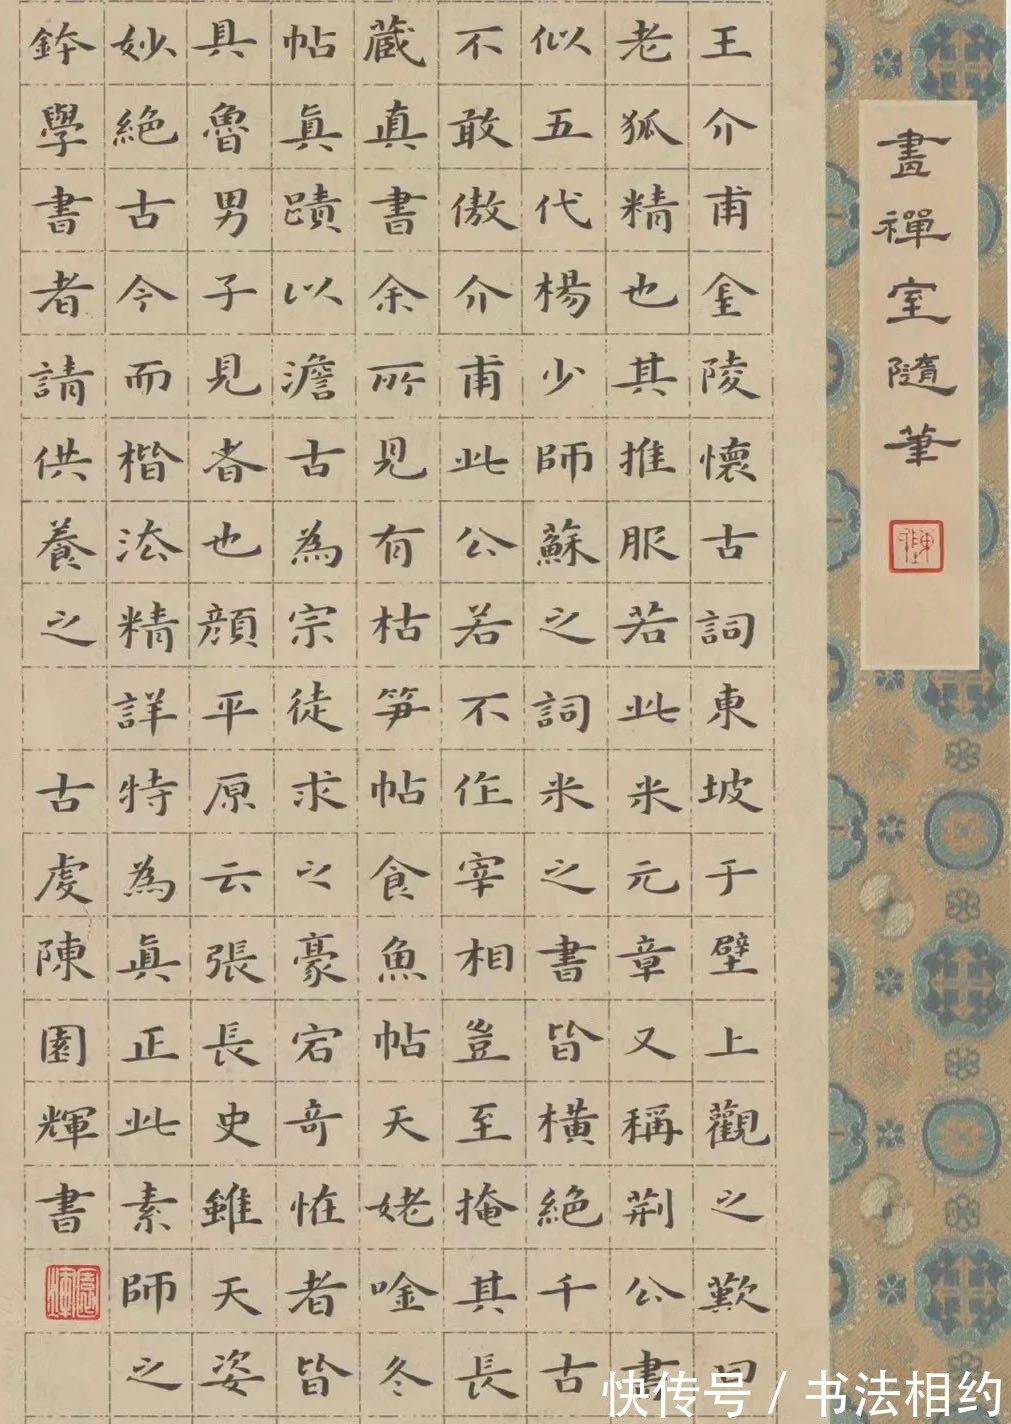 畫禪室隨筆
王介甫金陵懷古詞東坡于壁上觀之歎曰
老狐精也其推服若此米元章又稱荆公書
似五代楊少師蘇之詞米之書皆橫絶千古
不敢傲介甫此公若不作宰相豈至掩其長
藏真書余所見有枯笋帖食魚帖天姥唫冬
帖眞蹟以澹古為宗徒求之豪宕奇恠者皆
具魯男子見者也顔平原云張長史雖天姿
妙絶古今而楷法精詳特為眞正此素師之
鉢學書者請供養之 古虔陳園輝書
快传号 / 书法相约